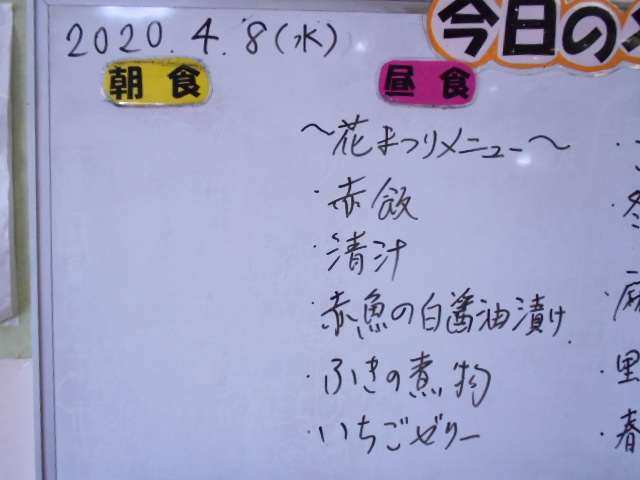 2020.4.8(水)
今日の
朝食
昼食
～花まつりメニュー～
・赤飯
・清汁
・赤魚の白醤油漬け
・ふきの煮物
・いちごゼリー